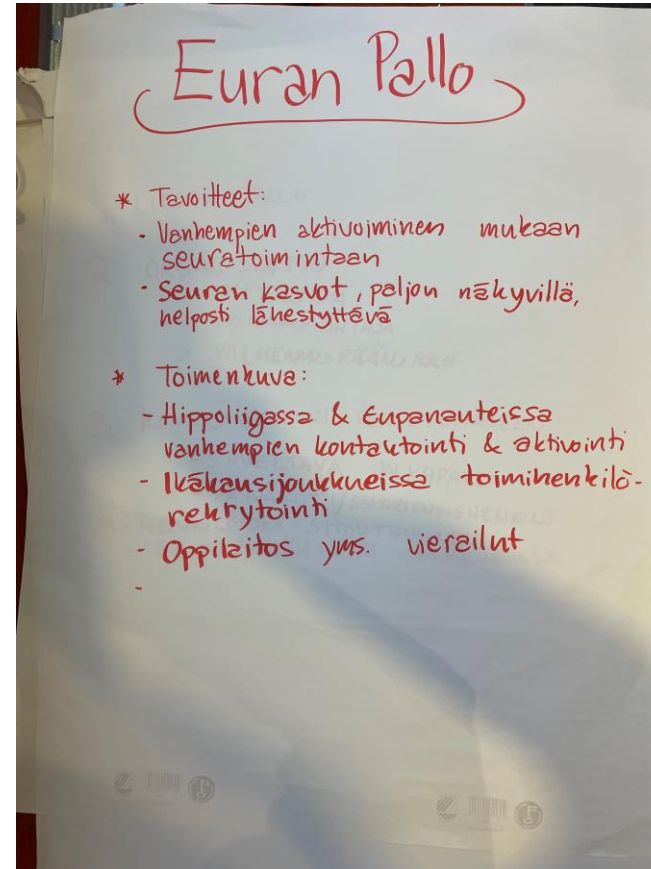 Euran Pallo
* Tavoitteet:
- Vanhempien aktivoiminen mukaan
seuratoimintaan
- Seuran kasvot, paljon näkyvillä,
helposti lähestyttävä
* Toimenkuva:
- Hippoliigassa & Eupanauteissa
vanhempien kontaktointi & aktivointi
- Ikäkausijoukkueissa toimihenkilö-
rekrytointi
- Oppilaitos yms. vierailut
-